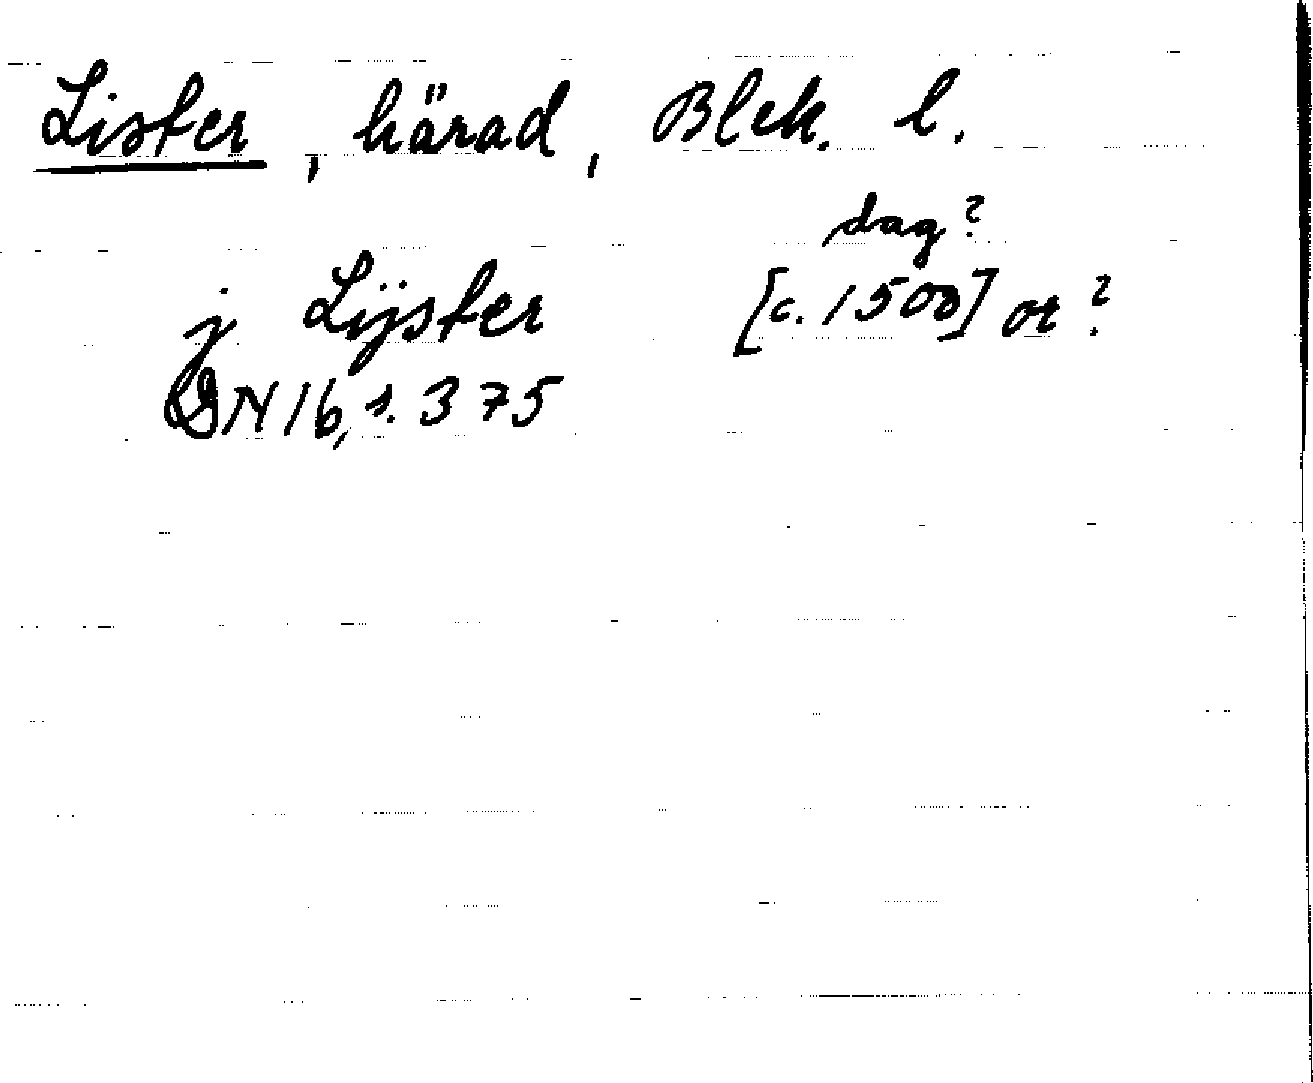 Lister, härad, Blek. l.
dag?
j Lÿster [c. 1500] or?
DN 16, s. 375